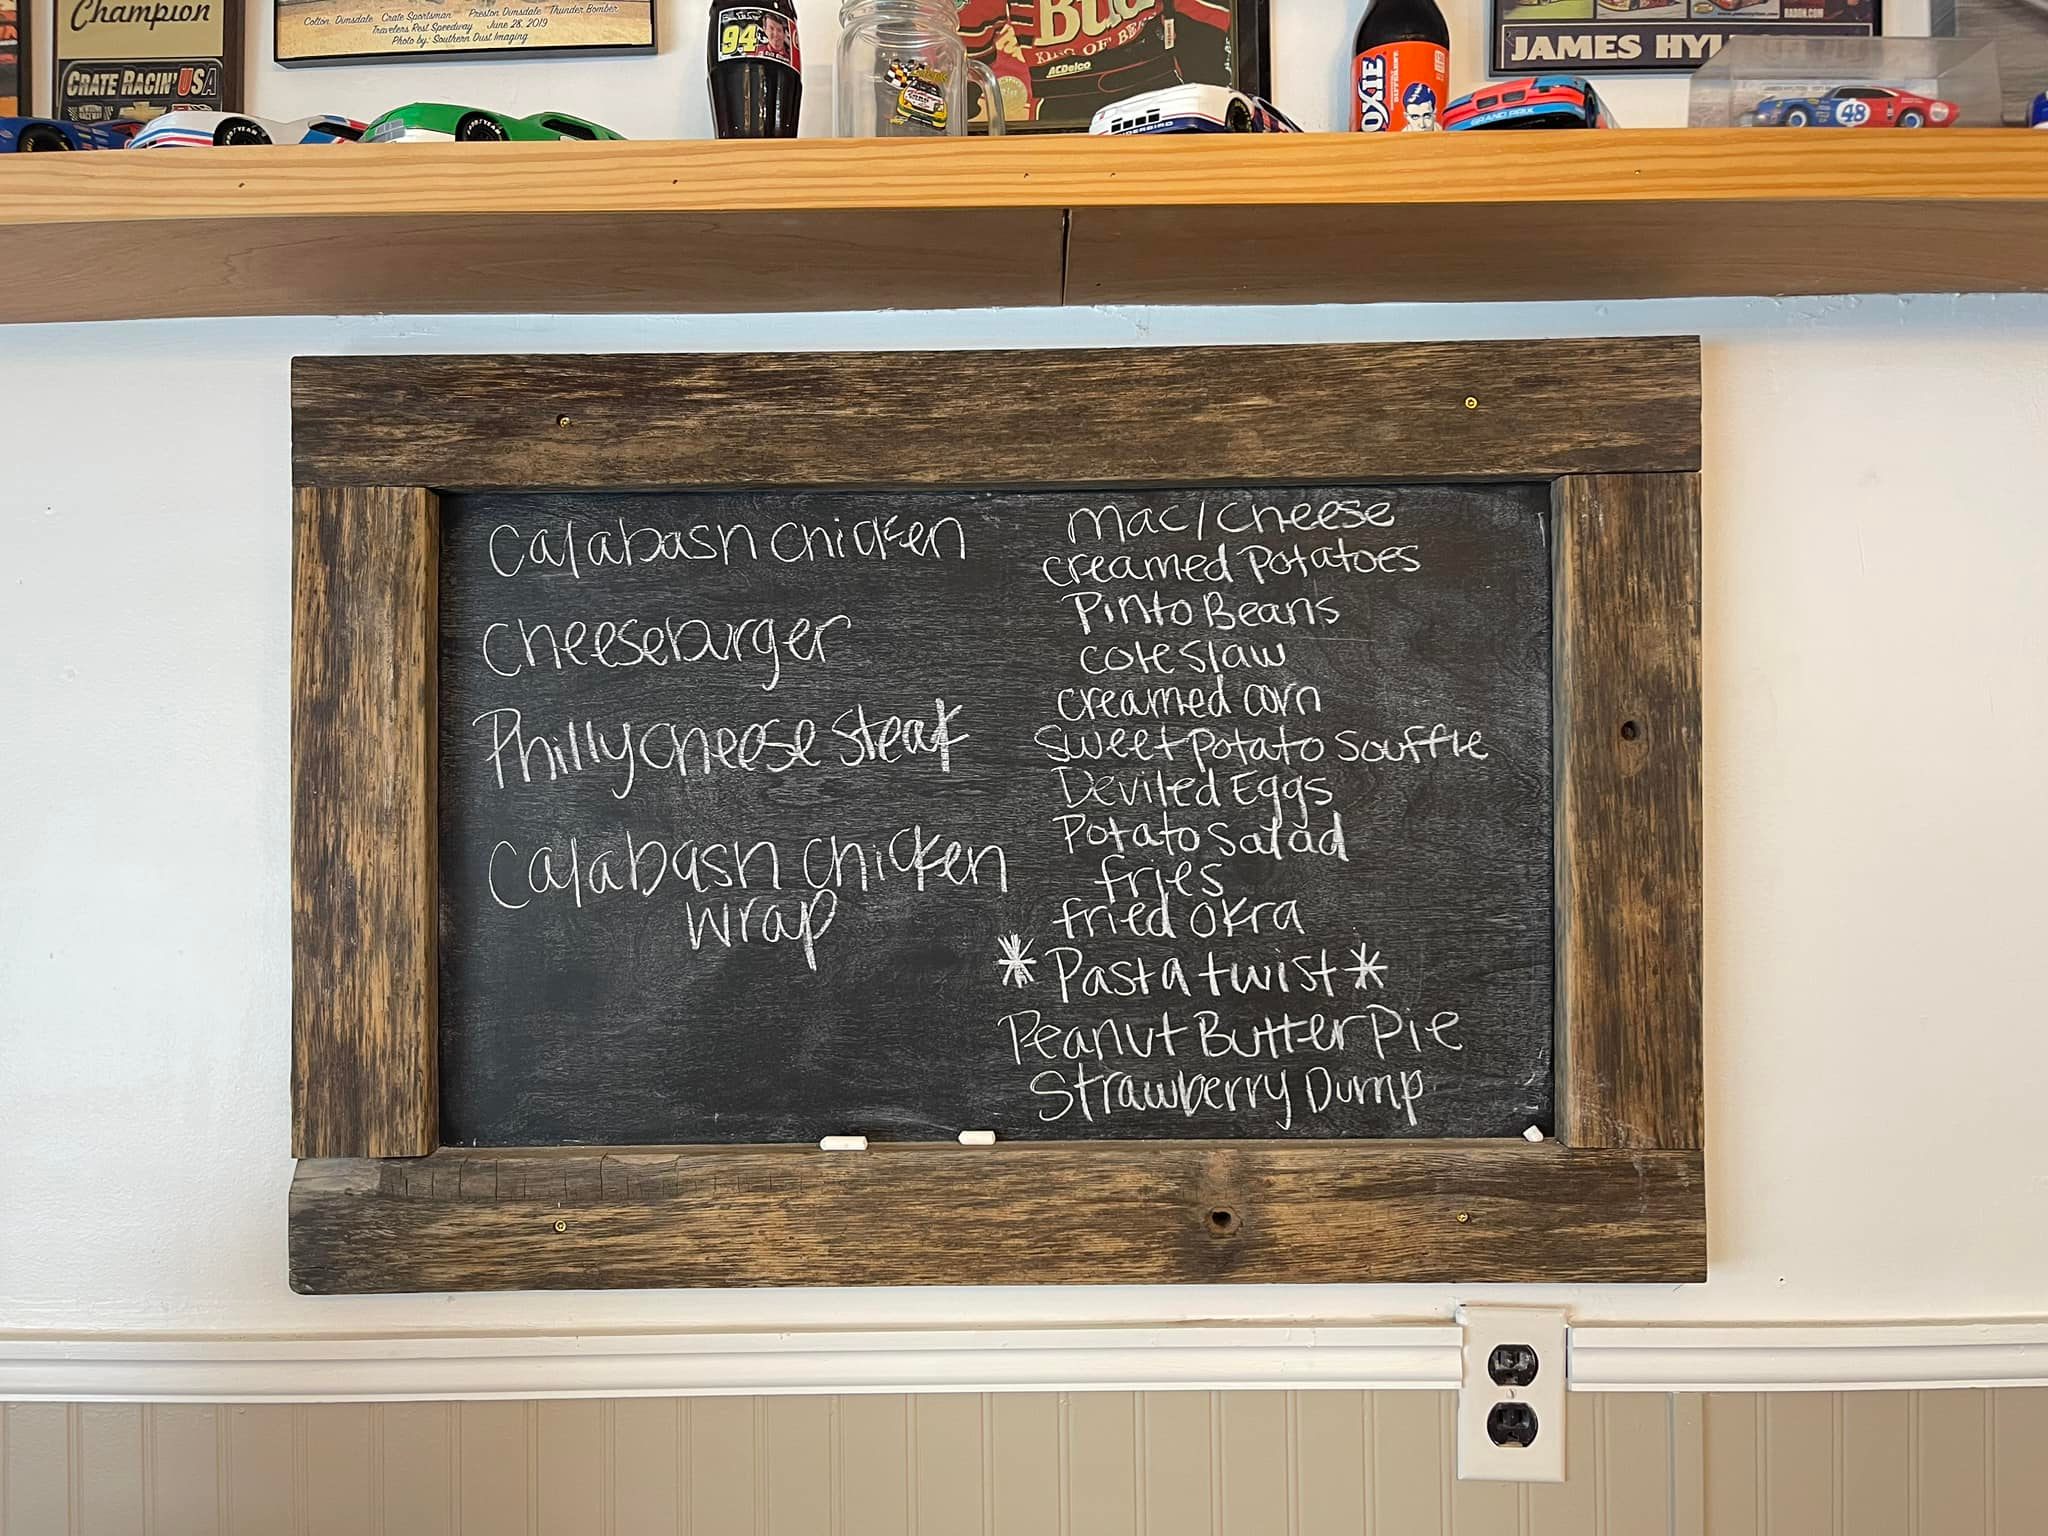 Champion
CRATE RACIN' USA
Colton Dimsdale Crate Sportsman Preston Dimsdale Thunder Bomber
Travelers Rest Speedway June 28, 2019
Photo by: Southern Dust Imaging
94
Bud
KING OF BE
ACDelco
MOXIE
JAMES HYL
RADON.COM
GOODYEAR
THUNDERBIRD
GRAND PRIX
48
Calabash chicken
cheeseburger
Philly cheese steak
Calabash chicken
wrap
mac/cheese
creamed Potatoes
Pinto Beans
cole slaw
creamed corn
sweet potato souffle
Deviled Eggs
Potato salad
fries
fried okra
*Pasta twist*
Peanut Butter Pie
Strawberry Dump